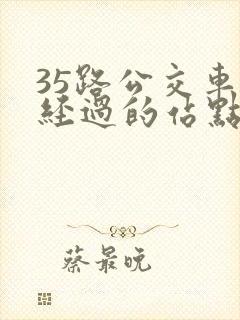 35路公交車
經過的佔點
蔡最晚